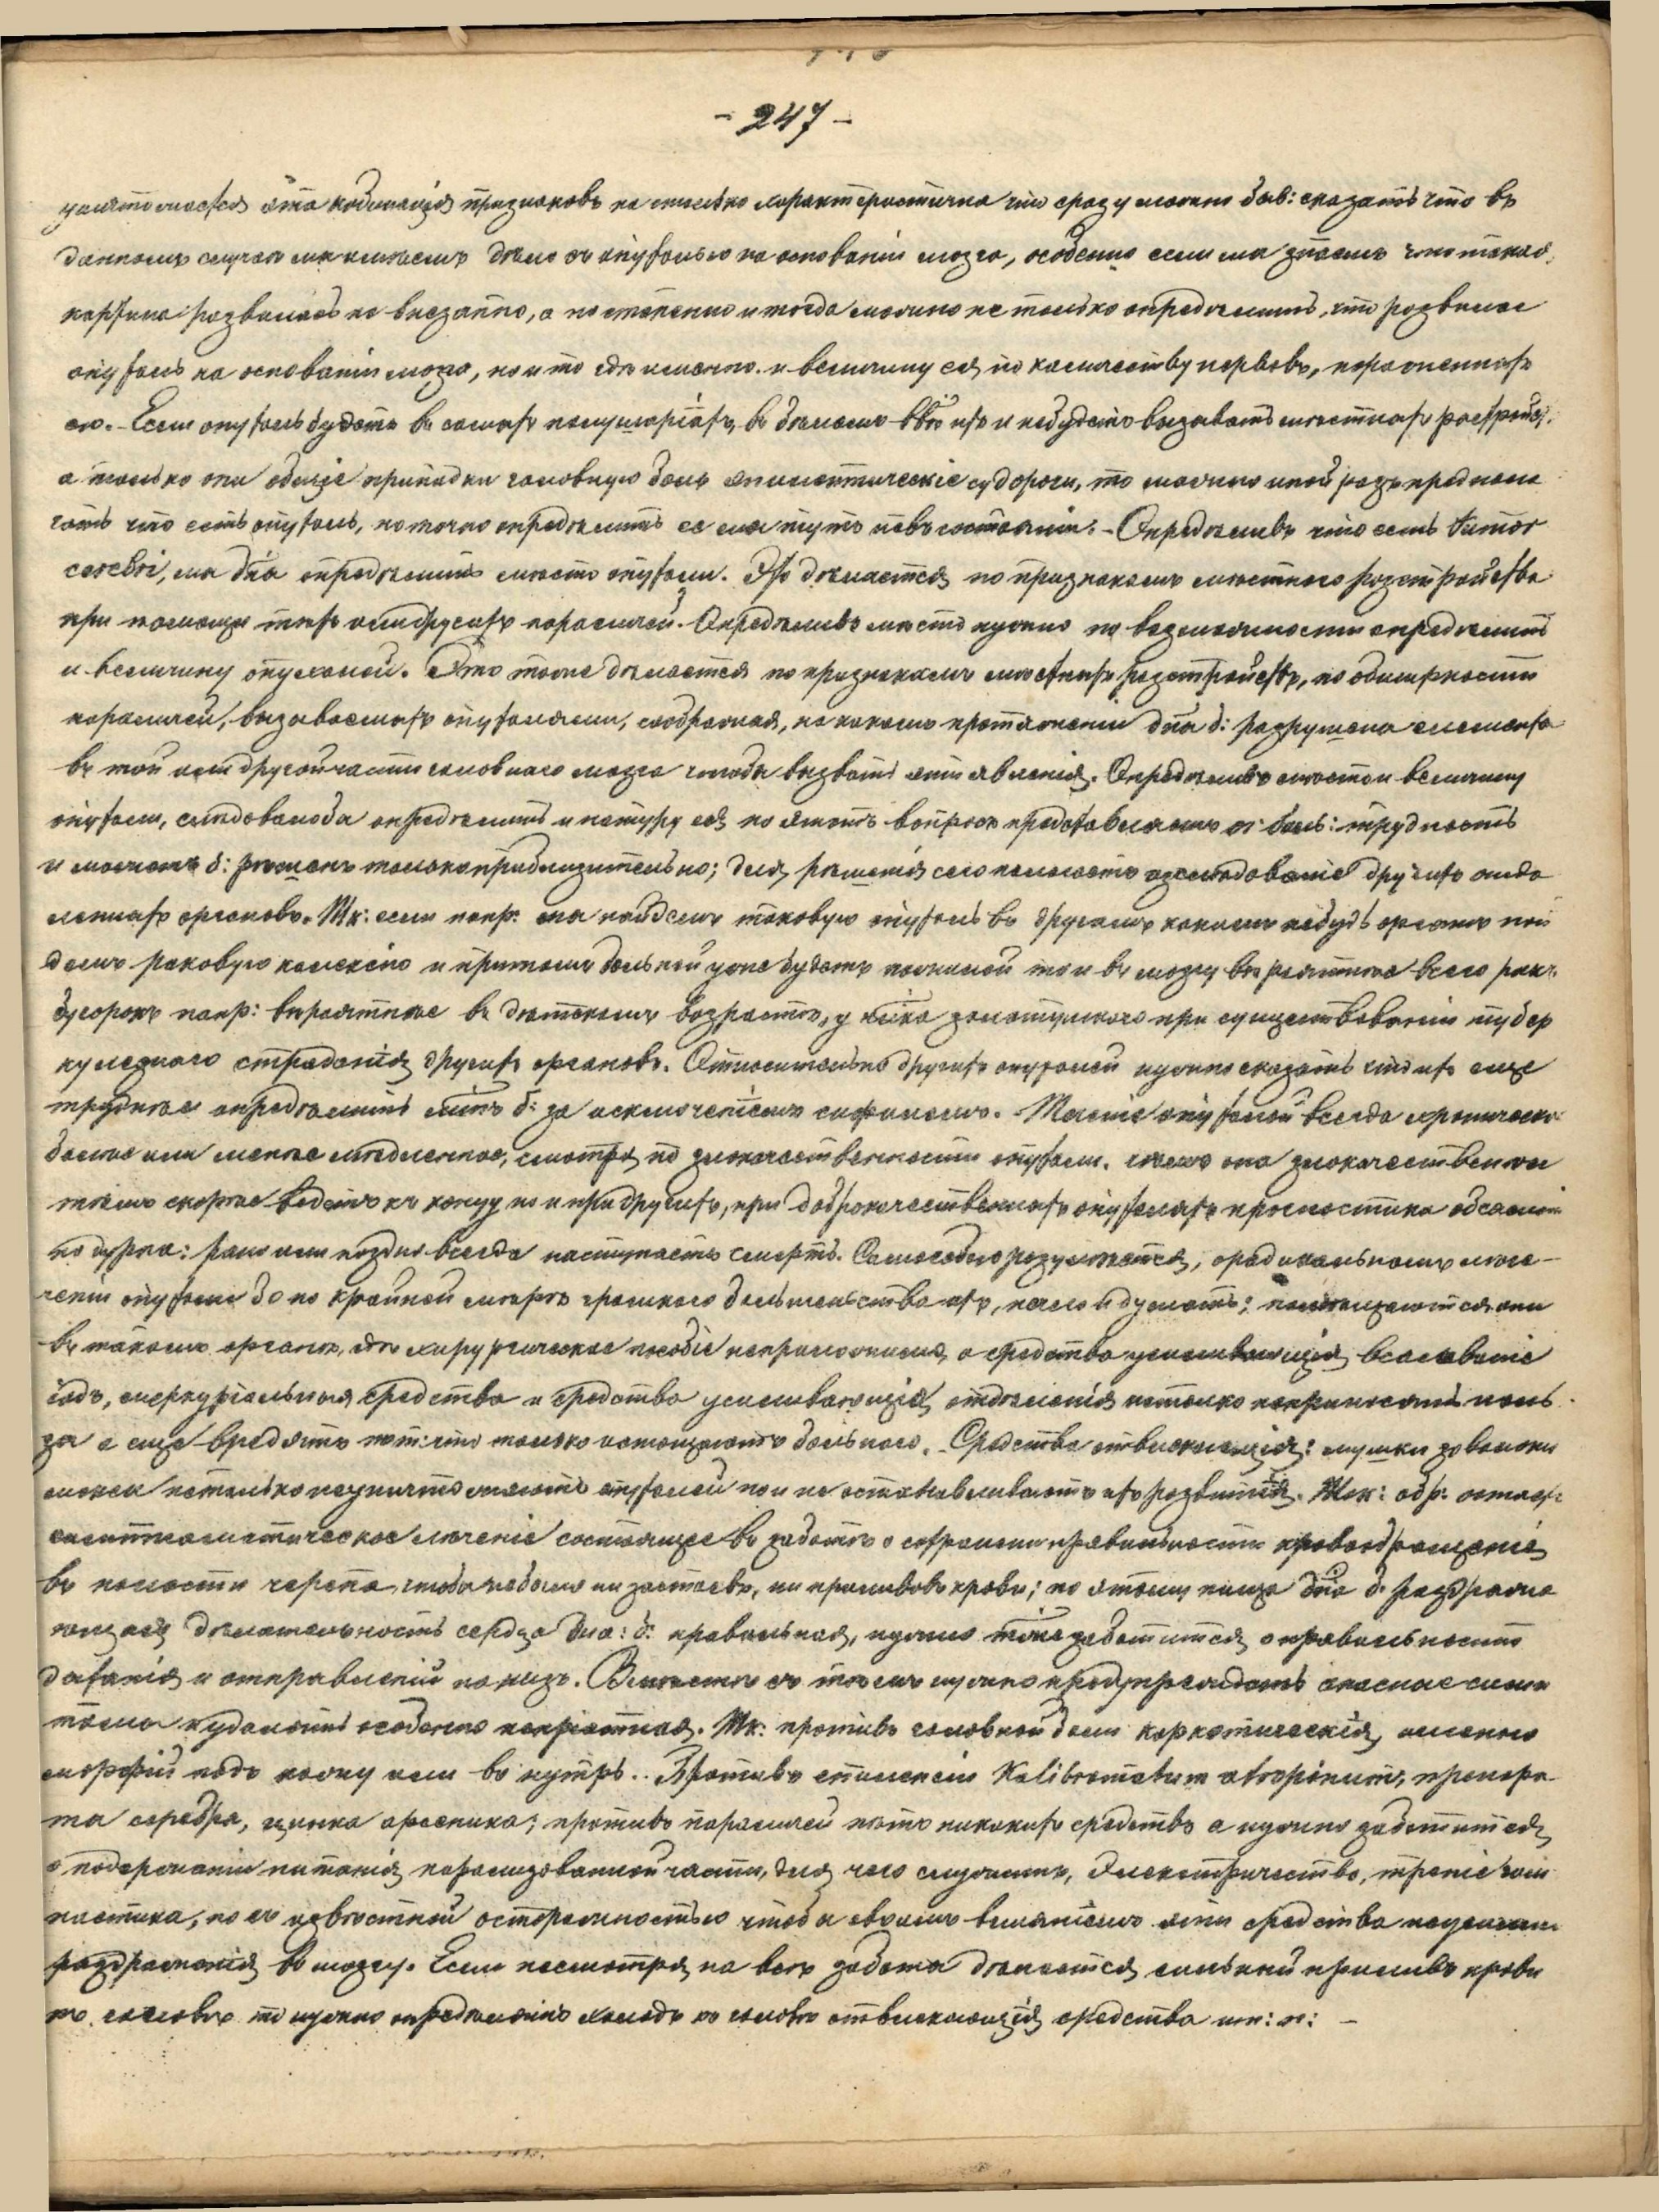 - 247 -
эта кобинація признаковъ на столько характеристична что сразу можно быв: сказать что въ
данномъ случаѣ мы имѣемъ дѣло съ опухолью на основаніи мозга, особенно если мы знаемъ что такая
картина развилась не внезапно, а постепенно и тогда можно не только опредѣлить, что развилась
опухоль на основаніи мозга, но и то гдѣ именно. и величину ея по количеству нервовъ, пораженныхъ
ею. - Если опухоль будетъ въ самыхъ полушаріяхъ, въ бѣломъ в-вѣ ихъ и небудетъ вызывать мѣстныхъ растройс.
а только одни общіе припадки головную боль эпилептическіе судороги, то можно иной разъ предпола
гать что есть опухоль, но точно опредѣлить ее мы тутъ невъ состояніи. - Опредѣливъ что есть tumor
cerebri, мы д-ны опредѣлить мѣсто опухоли. Это дѣлается по признакамъ мѣстнаго розстройства
при помощи тѣхъ или другихъ параличей. Опредѣливъ мѣсто нужно по возможности опредѣлить
и величину опухолей. Это тоже дѣлается по признакамъ мѣстныхъ розстройствъ, по обширности
параличей, вызываемыхъ опухолями, соображая, на какомъ протяженіи д-ны б: разрушены элементы
въ той или другой части головнаго мозга чтобы вызвать эти явленія. Опредѣливъ мѣсто и величину
опухоли, слѣдовалобы опредѣлить и натуру ея но этотъ вопросъ представляетъ боль: трудность
и можетъ б: рѣшенъ только приблизительно; для рѣшенія сего помогаетъ изслѣдованіе другихъ отдѣ
ленныхъ органовъ. Тк: если напр: мы найдемъ таковую опухоль въ другомъ какомъ нибудь органѣ най
демъ раковую кахексію и притомъ больной уже будетъ пожилой то и въ мозгу вѣроятнѣе всего ракъ.
Бугорокъ напр: вѣроятнѣе въ дѣтскомъ возрастѣ, у золотушнаго при существованіи тубер
кулезнаго страданія другихъ органовъ. Относительно другихъ опухолей нужно сказать что ихъ еще
труднѣе опредѣлить за исключеніемъ сифиломъ. - Теченіе опухолей всегда хроническо
болѣе или менѣе медленное, смотря по злокачественности опухоли. чѣмъ она злокачественнѣе
тѣмъ скорѣе ведетъ къ концу но и при другихъ, при доброкачественныхъ опухоляхъ прогностика абсолют
но дурна: рано или поздно всегда наступаетъ смерть. Самособою розумѣется, о радикальномъ лѣче-
ченіи опухоли по крайней мѣрѣ громнаго большенства ихъ, нечего и думать; помѣщаются они
въ такомъ органѣ, гдѣ хирургическое пособіе непримѣнимо, а средства усиливающія всасываніе
іодъ, меркуріальныя средства и средства усиливающія отдѣленія нетолко неприносятъ поль
зы а еще вредятъ пот: что только истощаютъ больнаго. - Средства отвлекающія: мушки заволоки
моксы нетолько неуничтожаютъ опухолей но и не останавливаютъ ихъ розвитія. Так: обр: остает:
симптоматическое леченіе состоящее въ заботѣ о сохраненіи правильности кровообращенія
въ полости черепа, чтобы небыло ни застоевъ, ни приливовъ крови; по этому пища
дѣятельность сердца д-на: б: правильная, нужно также заботится о правильности
дыханія и отправленій на низъ. Вмѣстѣ съ тѣмъ нужно предупреждать опасные симп
томы и удалять особенно непріятныя. Тк: противъ головной боли наркотическія, именно
морфій подъ кожу или во нутрь. - Противъ эпилепсіи Kalibrometum atropinum, препара
ты серебра, цинка арсеника; противъ параличей нѣтъ никакихъ средствъ а нужно заботится
о подержаніи питанія парализованной части, для чего служатъ, Электричество, треніе гим
настика, но съ извѣстной осторожностью чтобы своимъ вліяніемъ эти средства неусилили
раздраженія въ мозгу. Если несмотря на всѣ заботы дѣлается сильный приливъ крови
къ головѣ то нужно опредѣлить холодъ на голову отвлекающія средства ит: п: -